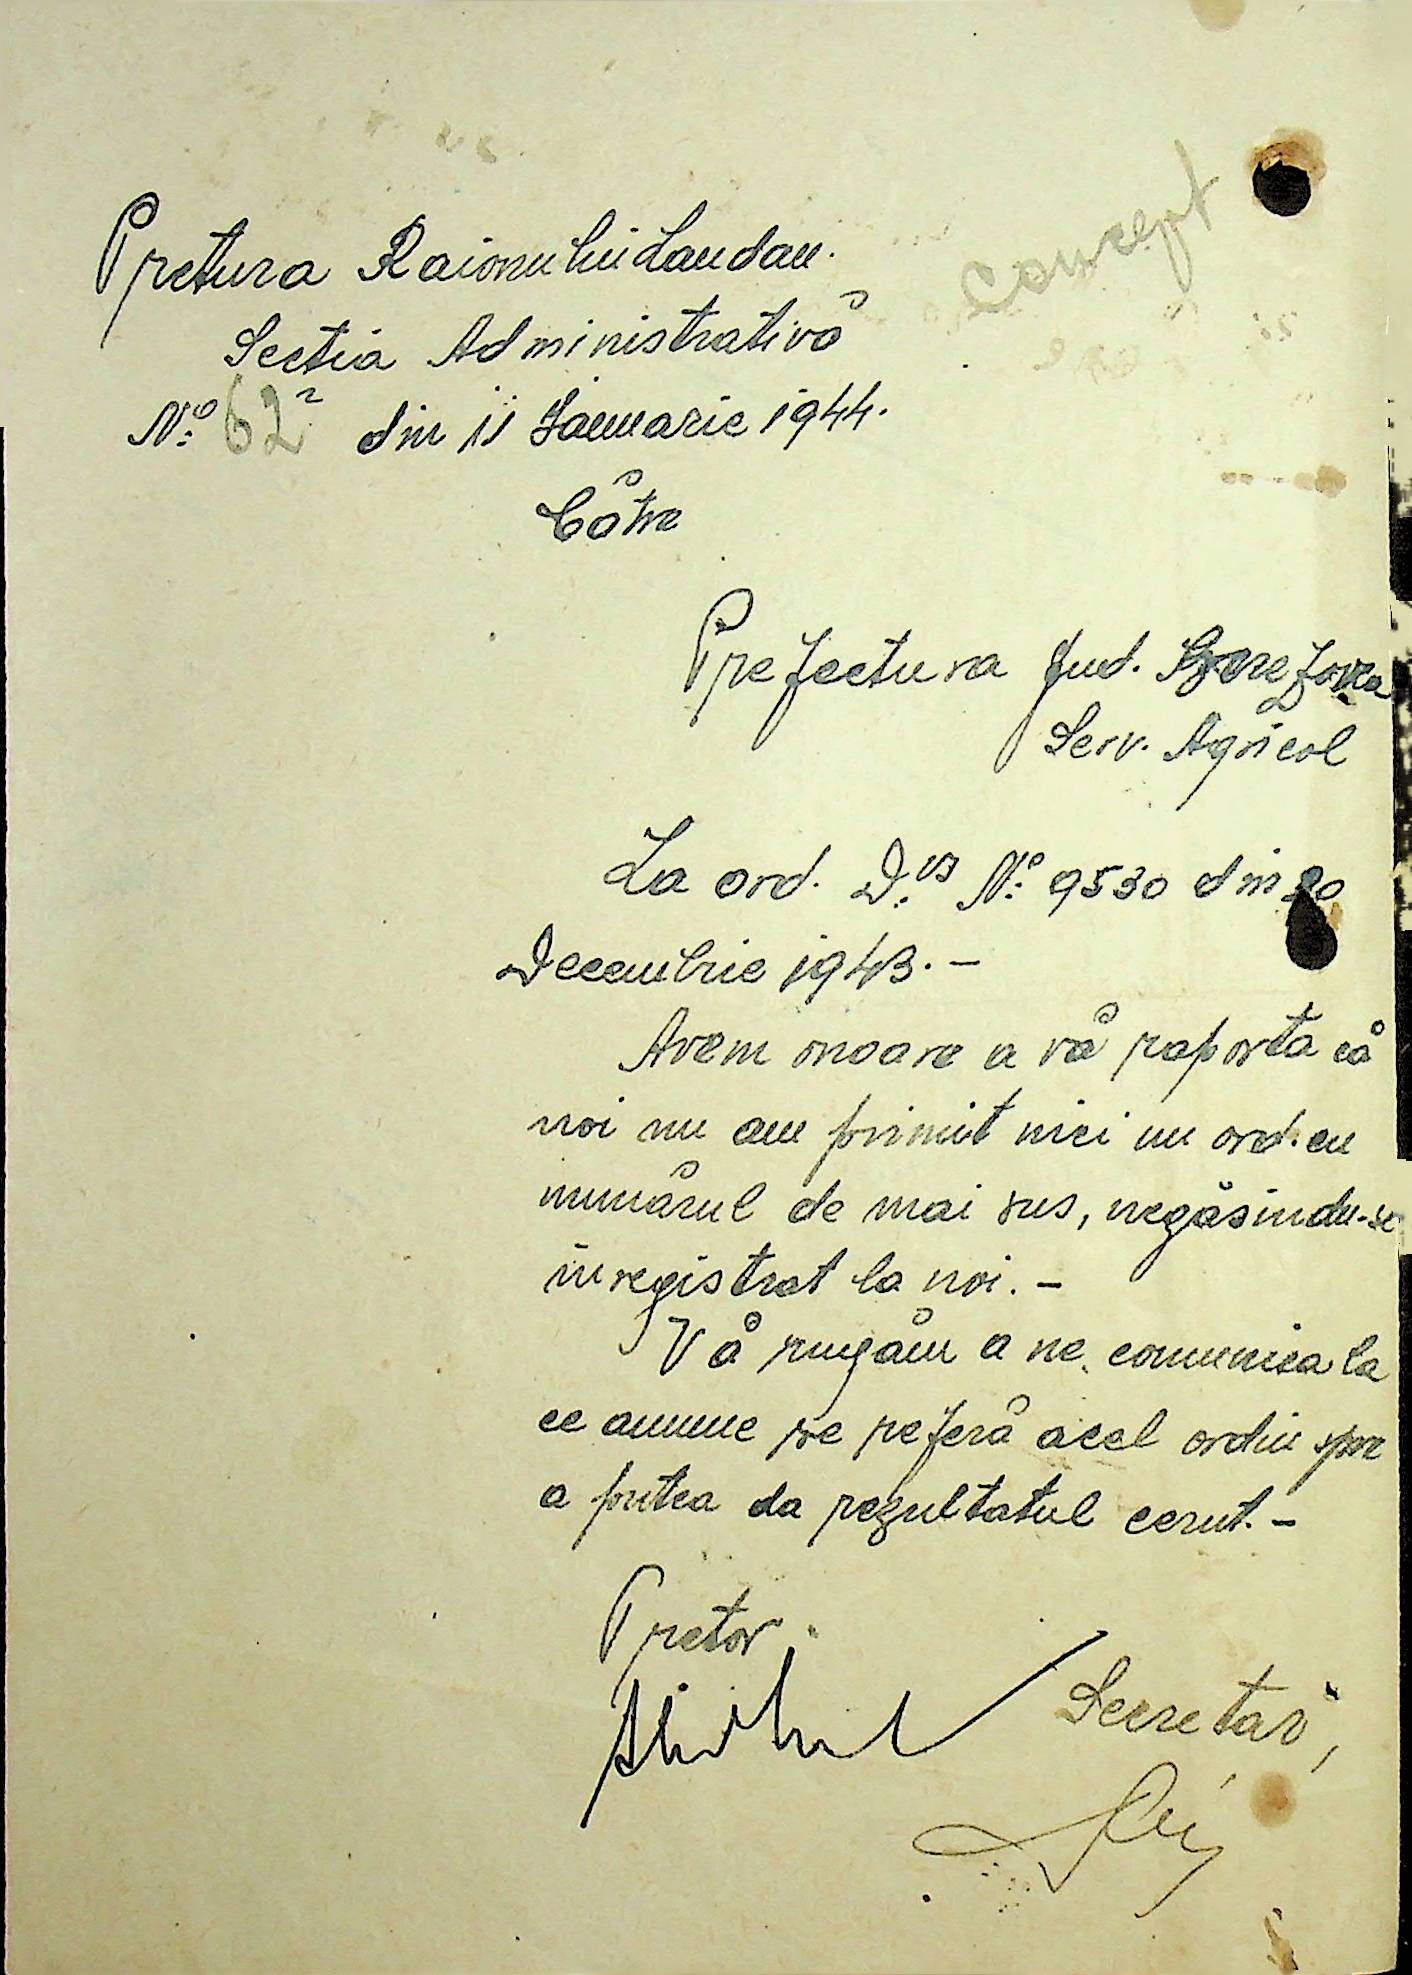 concept
Pretura Raionului Landau.
Secția Administrativă
Nº: 62² din 11 Ianuarie 1944.
Către
Prefectura Jud. Berezovca
Serv. Agricol
La ord. D.vs Nº: 9530 din 20
Decembrie 1943. –
Avem onoare a vă raporta că
noi nu am primit nici un ord. cu
numărul de mai sus, negăsindu-se
inregistrat la noi. –
Vă rugăm a ne comunica la
ce anume se referă acel ordin spre
a putea da rezultatul cerut. –
Pretor
Secretar,